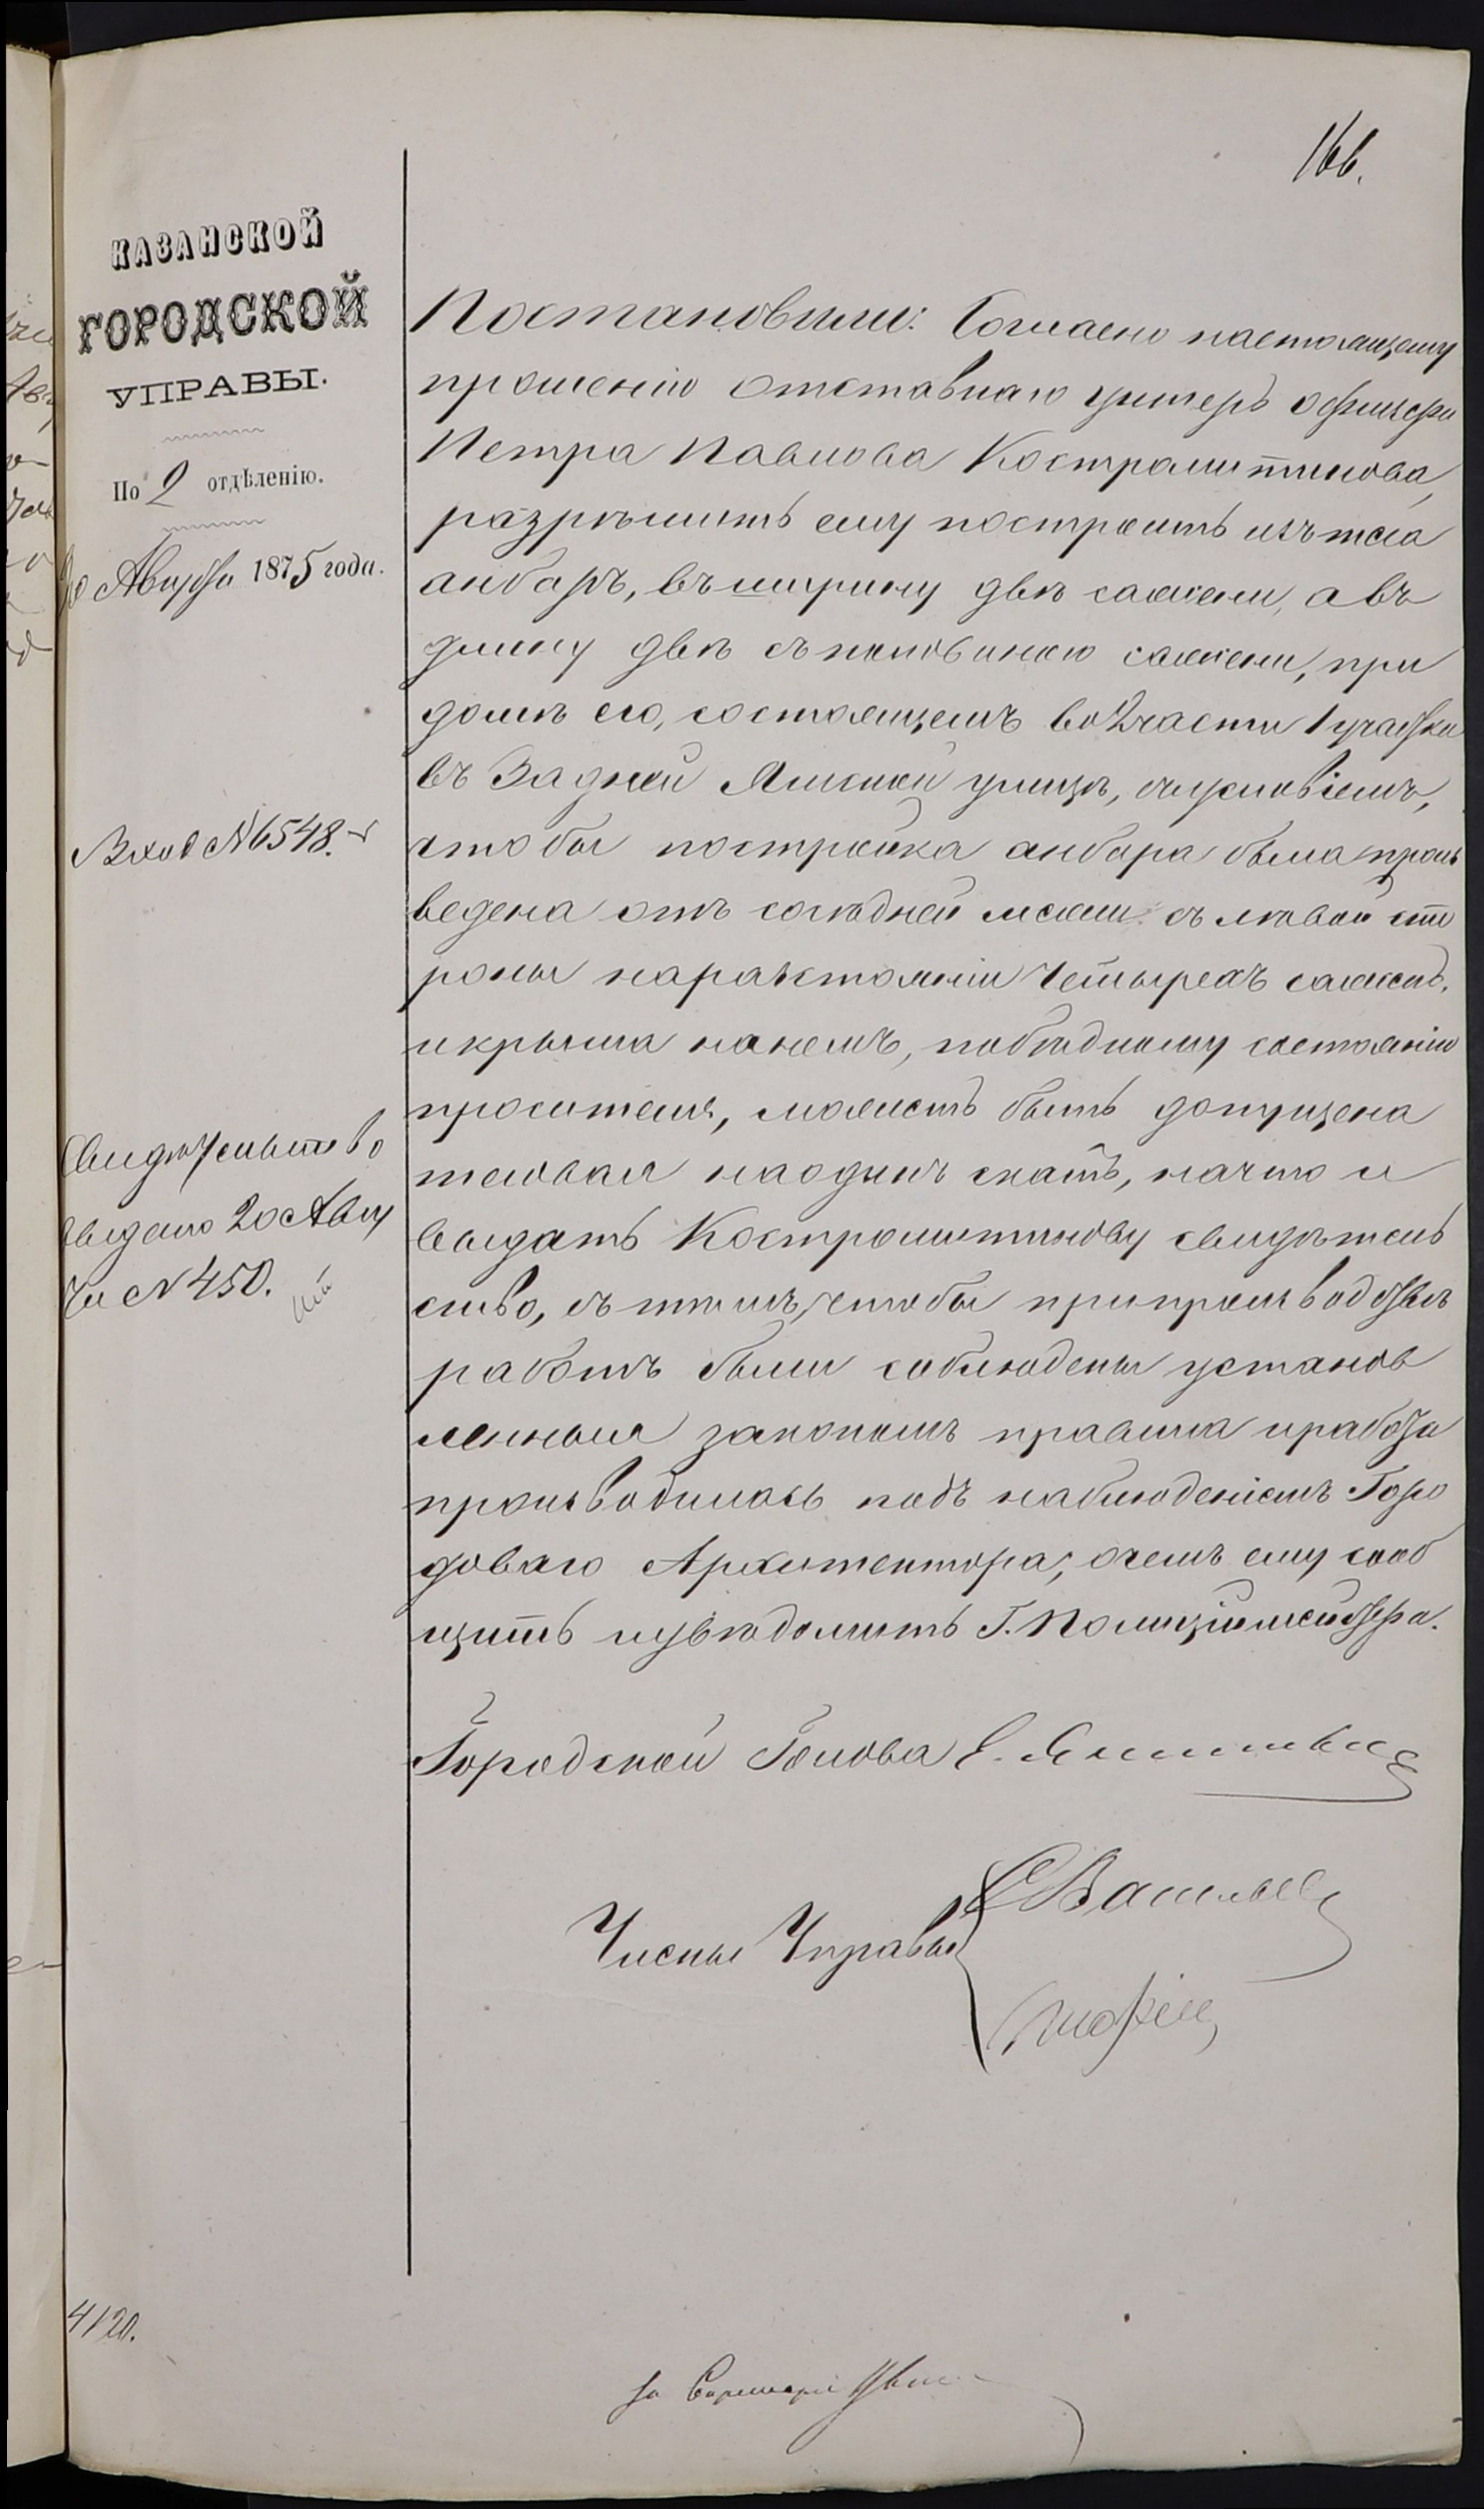 166.
КАЗАНСКОЙ
ГОРОДСКОЙ
УПРАВЫ.
По 2 отдѣленію.
20 Августа 1875 года.
Вход №6548.
Свидѣтельство
выдано 20 Авгу
ста №450.
4120.
Постановили: Согласно настоящему
прошенію отставнаго унтеръ офицера
Петра Павлова Костромитинова,
разрѣшить ему построить изъ теса
анбаръ, въ ширину двѣ сажени, а въ
длину двѣ съ половиною сажени, при
домѣ его, состоящемъ во 2 части 1 участка
въ Задней Ямской улицѣ, съ условіемъ,
чтобы постройка анбара была произ
ведена отъ сосѣдней межи съ лѣвой сто
роны на разстояніи четырехъ сажень,
и крыша на немъ, по бѣдному состоянію
просителя, можетъ быть допущена
тесовая на одинъ скатъ, на что и
выдать Костромитинову свидѣтель
ство, съ тѣмъ, чтобы при производствѣ
работъ были соблюдены установ
ленныя закономъ правила и работа
производилась подъ наблюденіемъ Горо
доваго Архитектора, о чемъ ему сооб
щить и увѣдомить Г. Полиціймейстера.
Городской Голова Е.
Члены Управы
Васильев
За Секретаря